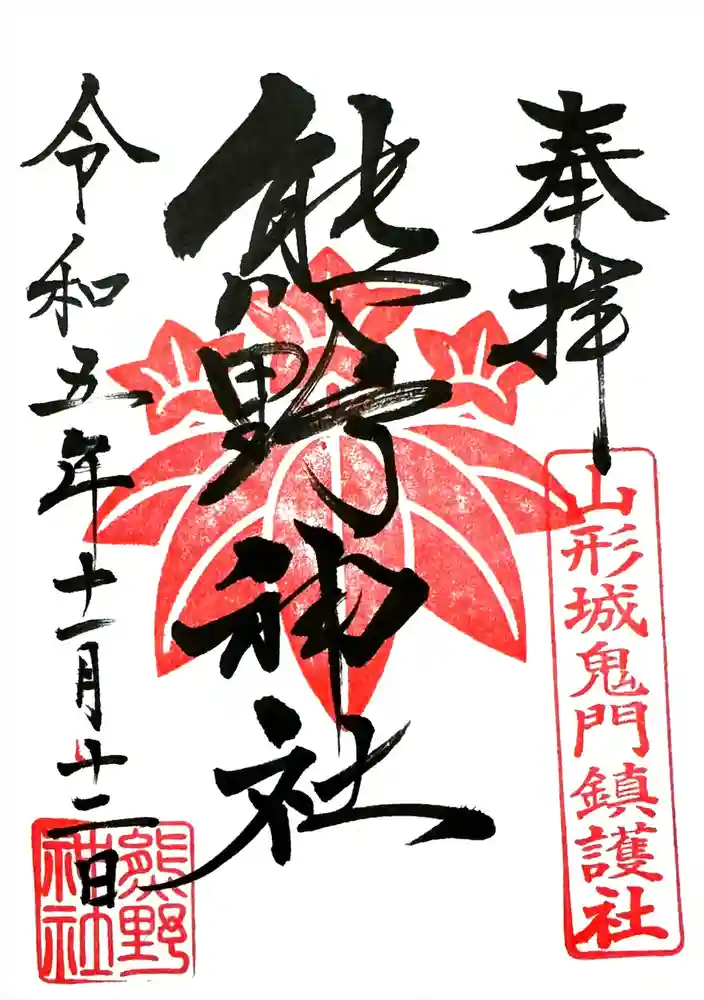 奉拝
山形城鬼門鎮護社
熊野神社
令和五年十一月十二日
熊野神社